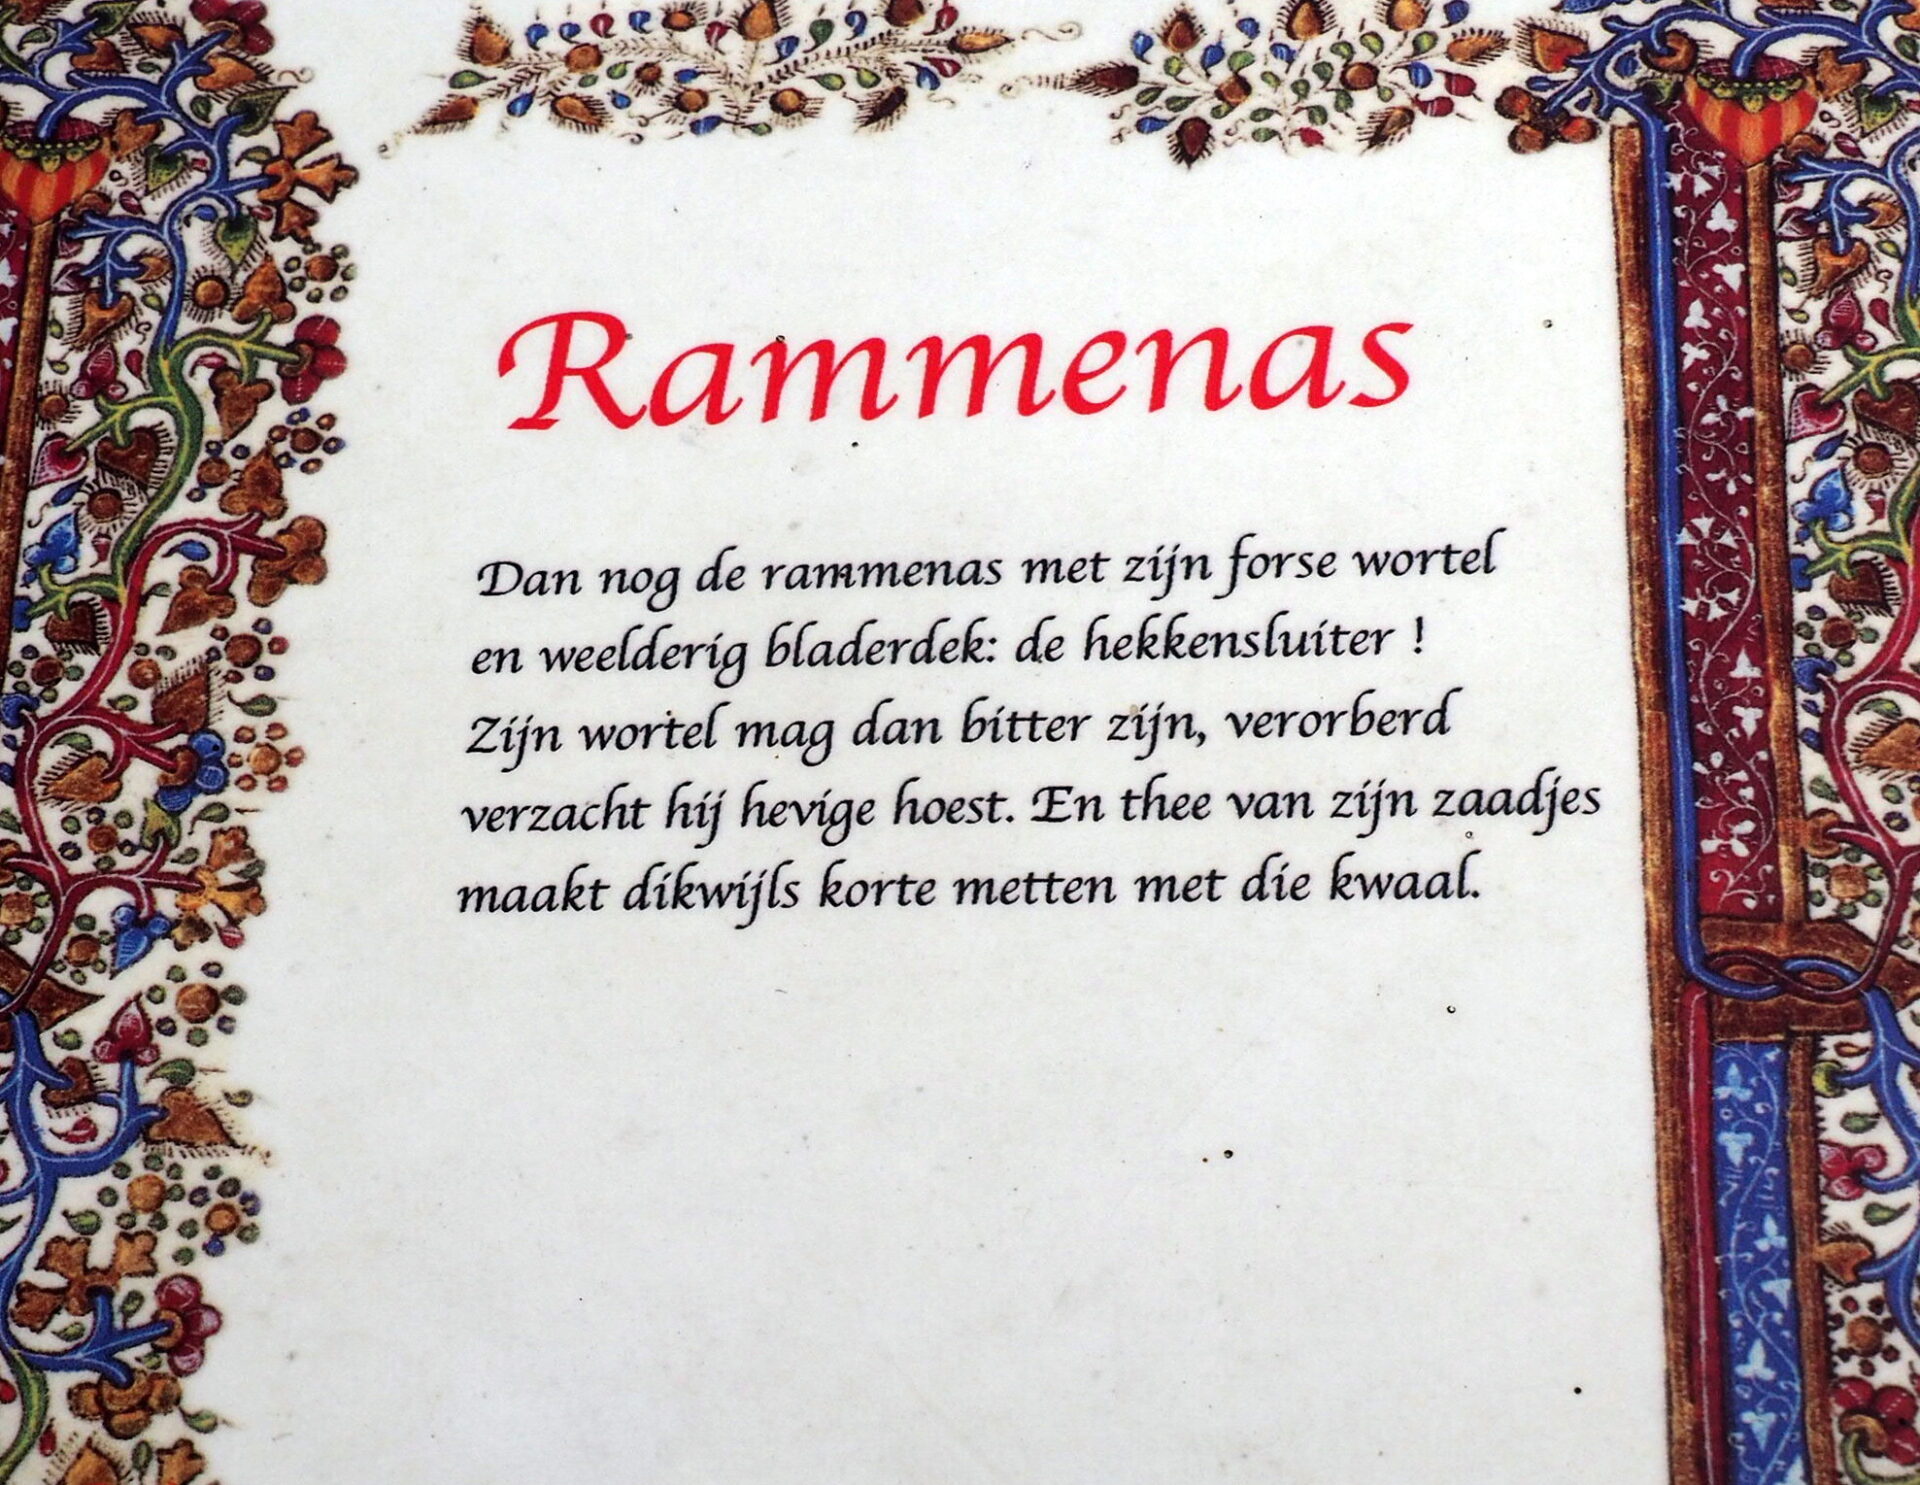 Rammenas
Dan nog de rammenas met zijn forse wortel
en weelderig bladerdek: de hekkensluiter !
Zijn wortel mag dan bitter zijn, verorberd
verzacht hij hevige hoest. En thee van zijn zaadjes
maakt dikwijls korte metten met die kwaal.